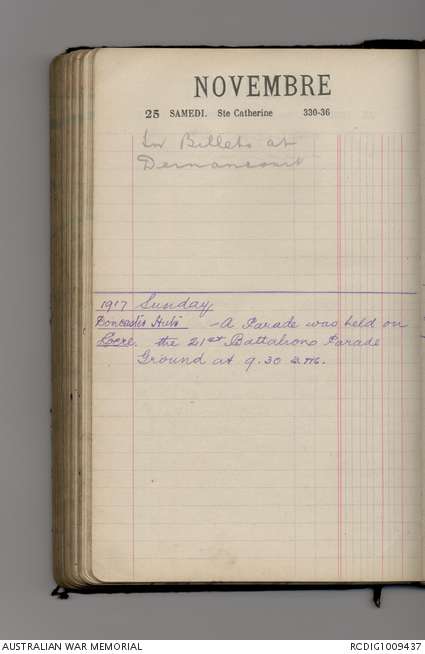 NOVEMBRE
25 SAMEDI. Ste Catherine 330-36
In Billets at
Dernancourt
1917 Sunday
Doncaster Huts - A Parade was held on
Locre. the 21st Battalions Parade
Ground at 9.30 a.m.
AUSTRALIAN WAR MEMORIAL RCDIG1009437